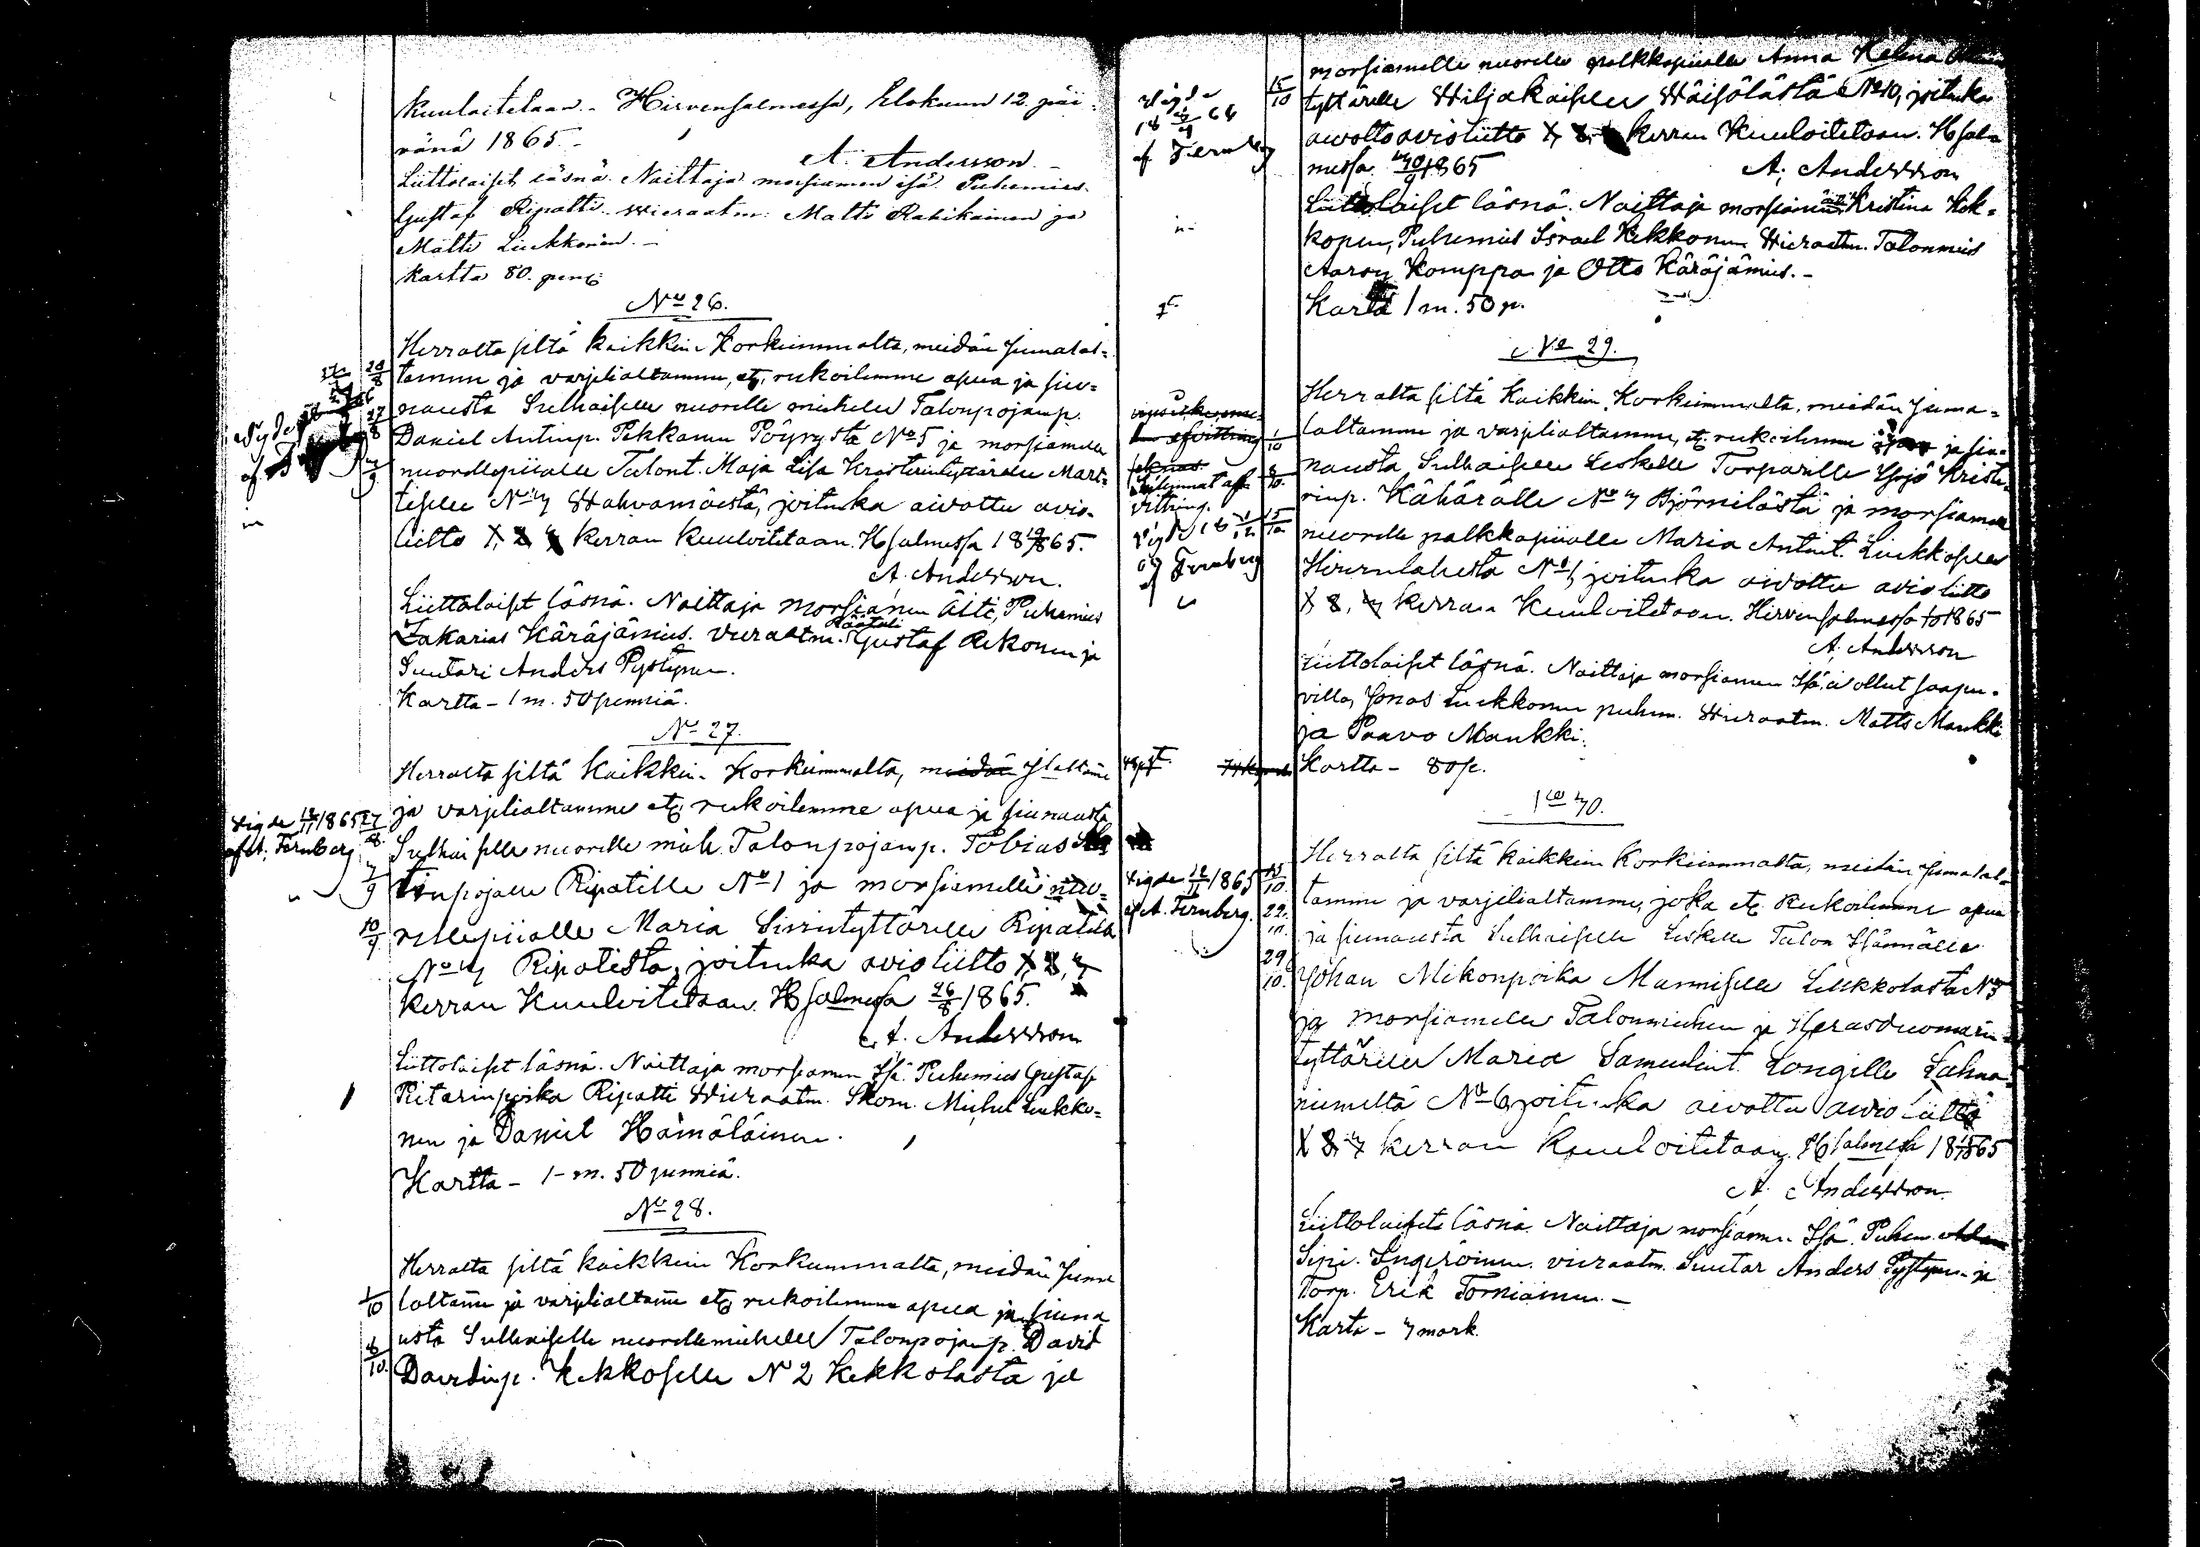 kuuloitetaan. Hirvensalmessa, Elokuun 12. päi-
vänä 1865.
A. Andersson
Liittolaiset läsnä. Naittaja morsiamen isä. Puhemies
Gustaf Ripatti. Wieraatm. Matti Rahikainen ja
Matti Liukkonen.
Kartta 80. pen
No 26.
Herralta siltä kaikkein Korkeimmalta, meidän Jumalal-
20/8 tamme ja varjelialtamme, etc. rukoilemme apua ja siu-
27/8 nausta Sulhaiselle nuorelle miehelle Talonpojanp.
Daniel Antinp. Pekkanen Pöyrystä No 5 ja morsiamelle
3/9 nuorellepiialle Talont. Maja Lisa Kristerintyttärelle Mart-
tiselle No 4 Wahvamäestä, joitenka aivottu avio-
liitto 1, 2, 3 kerran Kuuloitetaan. HSalmessa 18 19/8 65.
A. Andersson.
Liittolaiset läsnä. Naittaja morsiamen äiti, Puhemies
Zakarias Käräjämies. vieraatm. Räätäli Gustaf Rekonen ja
Suutari Anders Pystynen.
Kartta - 1 m. 50 penniä.
No 27.
Herralta siltä Kaikkein Korkeimmalta, meidän Jlaltame
Vigde 12/11 1865 27/8 ja varjelialtamme etc rukoilemme apua ja siunausta
af A. Fernberg Sulhaiselle nuorelle mieh. Talonpojanp. Tobias
3/9 tinpojalle Ripatille No 1 ja morsiamelle nuo-
10/9 rellepiialle Maria Sissintyttärelle Ripatilla
No 4 Ripatista, joitenka avioliitto 1, 2, 3
kerran Kuuloitetaan HSalmessa 26/8 1865.
A. Andersson
Liittolaiset läsnä. Naittaja morsiamen Isä. Puhemies Gustaf
Pitarinpoika Ripatti Wieraatm. Skom. Michel Liukko-
nen ja Daniel Hämäläinen.
Kartta - 1 m. 50 penniä.
No 28.
Herralta siltä kaikkein Korkeimmalta, meidän Juma
1/10 laltame ja varjelialtame etc rukoilemme apua ja siuna
8/10 usta Sulhaiselle nuorellemiehelle Talonpojanp. David
Davidinp. Kekkoselle No 2 Kekkolasta ja
Vigde af Fernberg
15/10 morsiamelle nuorelle palkkapiialle Anna Helena
tyttärelle Hiljakaiselle Wäisölästä No 10, joitenka
aivottu avioliitto 1, 2, 3 kerran Kuuloitetaan. HSal-
messa 1865
A. Andersson
Liittolaiset läsnä. Naittaja morsiamen äiti Kristina Kek-
konen, Puhemies Israel Kekkonen Wieraatm. Talonmies
Aaron Komppa ja Otto Käräjämies.
Kartta 1 m. 50 p.
No 29.
Herralta siltä Kaikkein Korkeimmalta, meidän Juma-
1/10 laltamme ja varjelialtamme, etc. rukoilemme apua ja siu-
8/10 nausta Sulhaiselle Leskelle Torparille Yrjö Kriste-
rinp. Kähärälle No 4 Björnilästä ja morsiamelle
15/10 nuorelle palkkapiialle Maria Antint. Liukkoselle
Hirvenlahesta No 1, joitenka aivottu avioliitto
1, 2, 3 kerran Kuuloitetaan. Hirvensalmessa 1865
A. Andersson
Liittolaiset läsnä. Naittaja morsiamen Isä, ei ollut saapu-
villa, Jonas Liukkonen puhem. Wieraatm. Matts Mankki
ja Paavo Mankki.
Kartta - 80 p.
No 30.
Herralta siltä kaikkein Korkeimmalta, meidän Jumalal-
Vigde 12/11 1865 15/10 tamme ja varjelialtamme, joka etc. Rukoilemme apua
af A. Fernberg. 22/10 ja siunausta Sulhaiselle Leskelle Talon Isännälle
29/10. Johan Mikonpoika Manniselle Liukkolasta No 5
ja morsiamelle Talonmiehen ja Herastuomarin
tyttärelle Maria Samuelint. Longille Lahna-
niemeltä No 6, joitenka aivottu avioliitto
1, 2, 3 kerran Kuuloitetaan. HSalmessa 1865
A. Andersson.
Liittolaiset läsnä. Naittaja morsiamen Isä. Puhem.
Sipi. Ingeröinen. vieraatm. Suutar Anders Pystynen ja
Torp. Erik Torniainen.
Kartta - 4 mark.